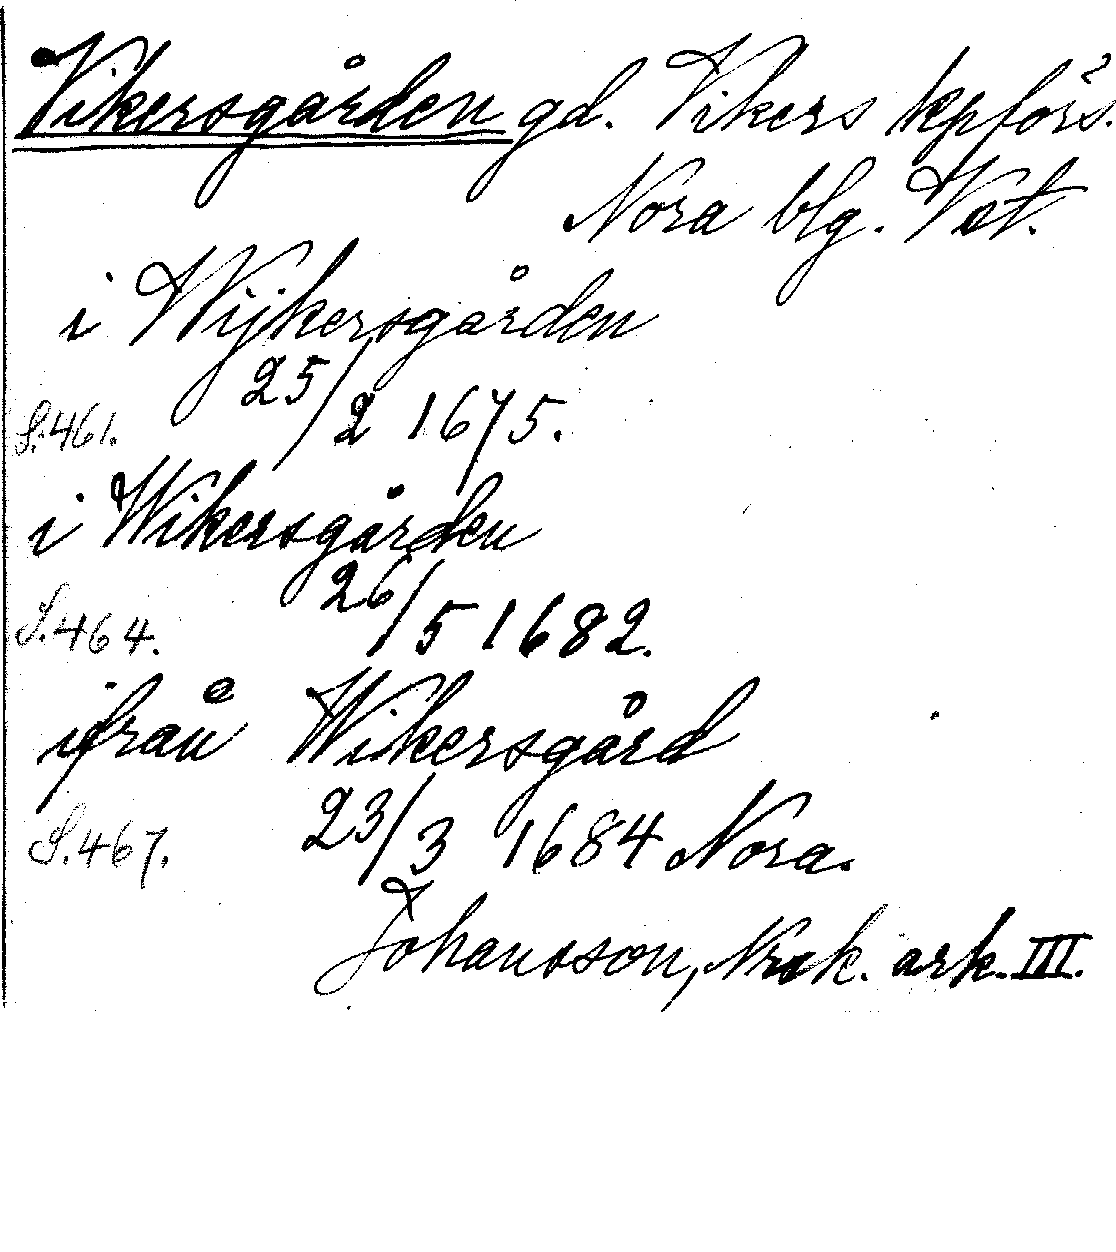 Vikersgården gd. Vikers kpförs.
Nora blg. Vst.
i Wijkersgården
25/2 1675.
S.461.
i Wikersgården
26/5 1682.
S.464.
ifrån Wikersgård
23/3 1684 Nora.
S.467.
Johansson, Nrak. ark. III.